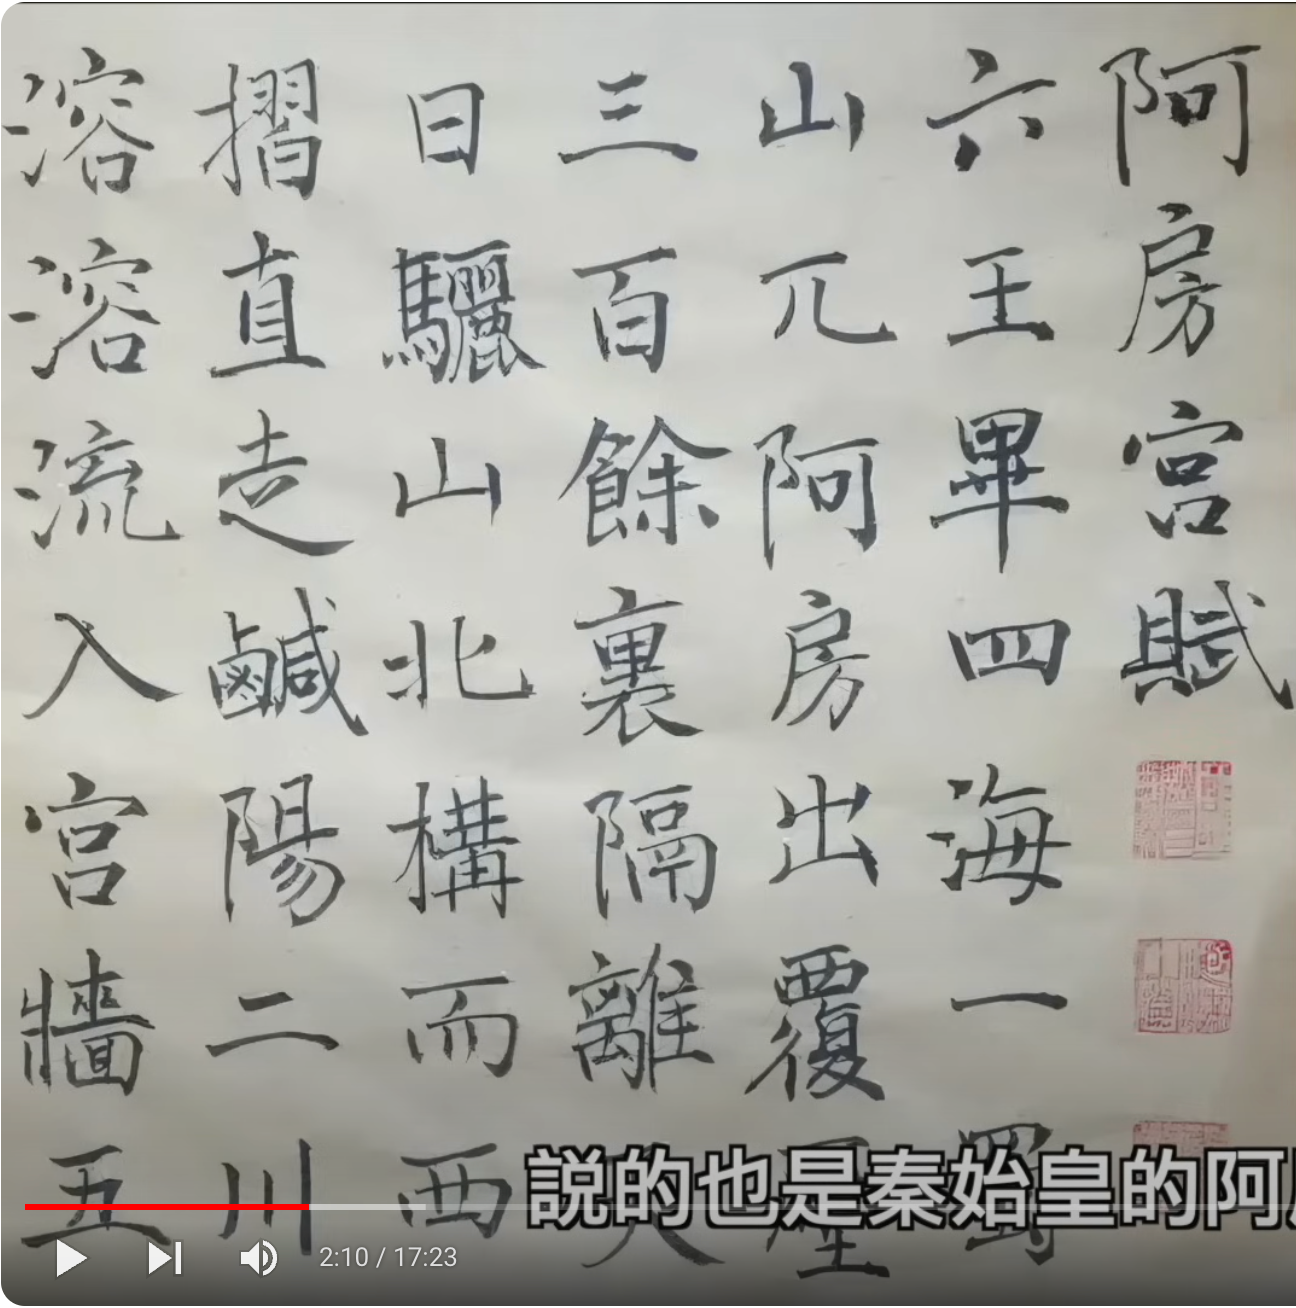 阿房宮賦
六王畢四海一蜀
山兀阿房出覆壓
三百餘裏隔離天
日驪山北構而西
摺直走鹹陽二川
溶溶流入宮牆五
説的也是秦始皇的阿
2:10 / 17:23